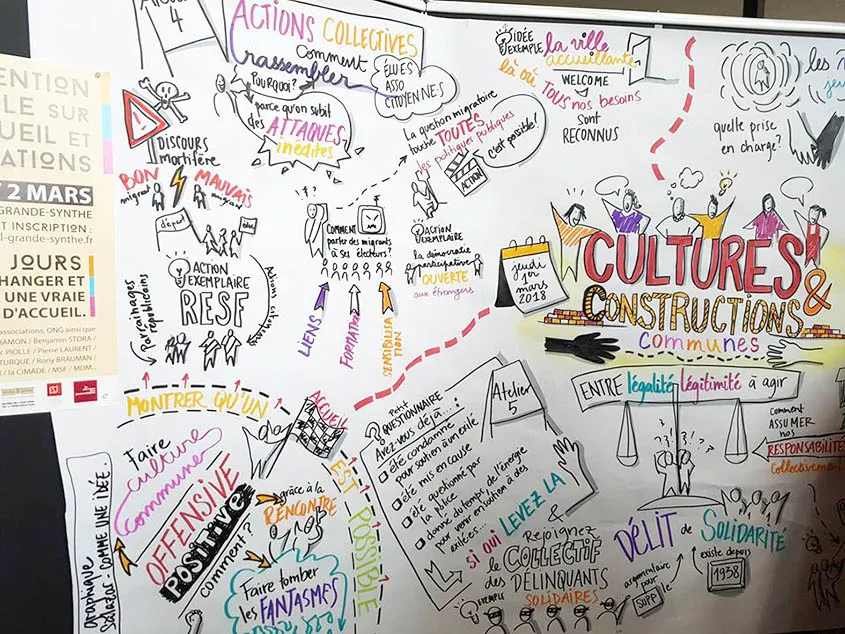 4
ENTION
LE SUR
UEIL ET
ATIONS
2 MARS
GRANDE-SYNTHE
ET INSCRIPTION :
l-grande-synthe.fr
JOURS
HANGER ET
UNE VRAIE
D'ACCUEIL.
associations, ONG ainsi que
HAMON / Benjamin STORA /
PIOLLE / Pierre LAURENT /
TURQUE / Rony BRAUMAN /
la CIMADE / MSF / MDM...
ACTIONS COLLECTIVES
comment
rassembler
POURQUOI?
parce qu'on subit
des ATTAQUES
inédites
ÉLU·ES
ASSO
CITOYEN·NES
DISCOURS
mortifère
BON
migrant
MAUVAIS
migrant
départ
ACTION
EXEMPLAIRE
RESF
Parrainages
républicains
La question migratoire
touche TOUTES
les politiques publiques
c'est possible!
ACTION
!?
COMMENT
parler des migrants
à ses électeurs?
LIENS
FORMATION
SENSIBILISA
TION
ACTION
EXEMPLAIRE
la démocratie
participative
OUVERTE
aux étrangers
IDÉE
EXEMPLE
la ville
accueillante
WELCOME
là où TOUS nos besoins
SONT
RECONNUS
quelle prise
en charge?
jeudi
1er
mars
2018
CULTURES
&
CONSTRUCTIONS
communes
MONTRER QU'UN
ACCUEIL
EST POSSIBLE
Faire
culture
commune
OFFENSIVE
POSITIVE
comment?
grâce à la
RENCONTRE
Faire tomber
les FANTASMES
COMME UNE IDÉE.
Petit
QUESTIONNAIRE
Avez-vous déjà...
été condamné
pour soutien à un exilé
été mis en cause
été questionné par
la police
donné du temps, de l'énergie
pour venir en soutien à des
exilé·es...
Atelier
5
SI OUI LEVEZ LA
&
Rejoignez
le COLLECTIF
des DÉLINQUANTS
SOLIDAIRES
EXEMPLE
ENTRE légalité légitimité à agir
comment
ASSUMER
nos
RESPONSABILITÉ
collectivement
DÉLIT de SOLIDARITÉ
existe depuis
1938
argumentaire
pour le
SUPP